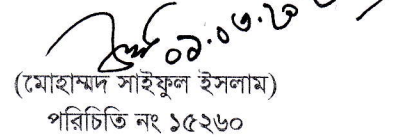 ০১.০৩.২১
(মোহাম্মদ সাইফুল ইসলাম)
পরিচিতি নং ১৫২৬০